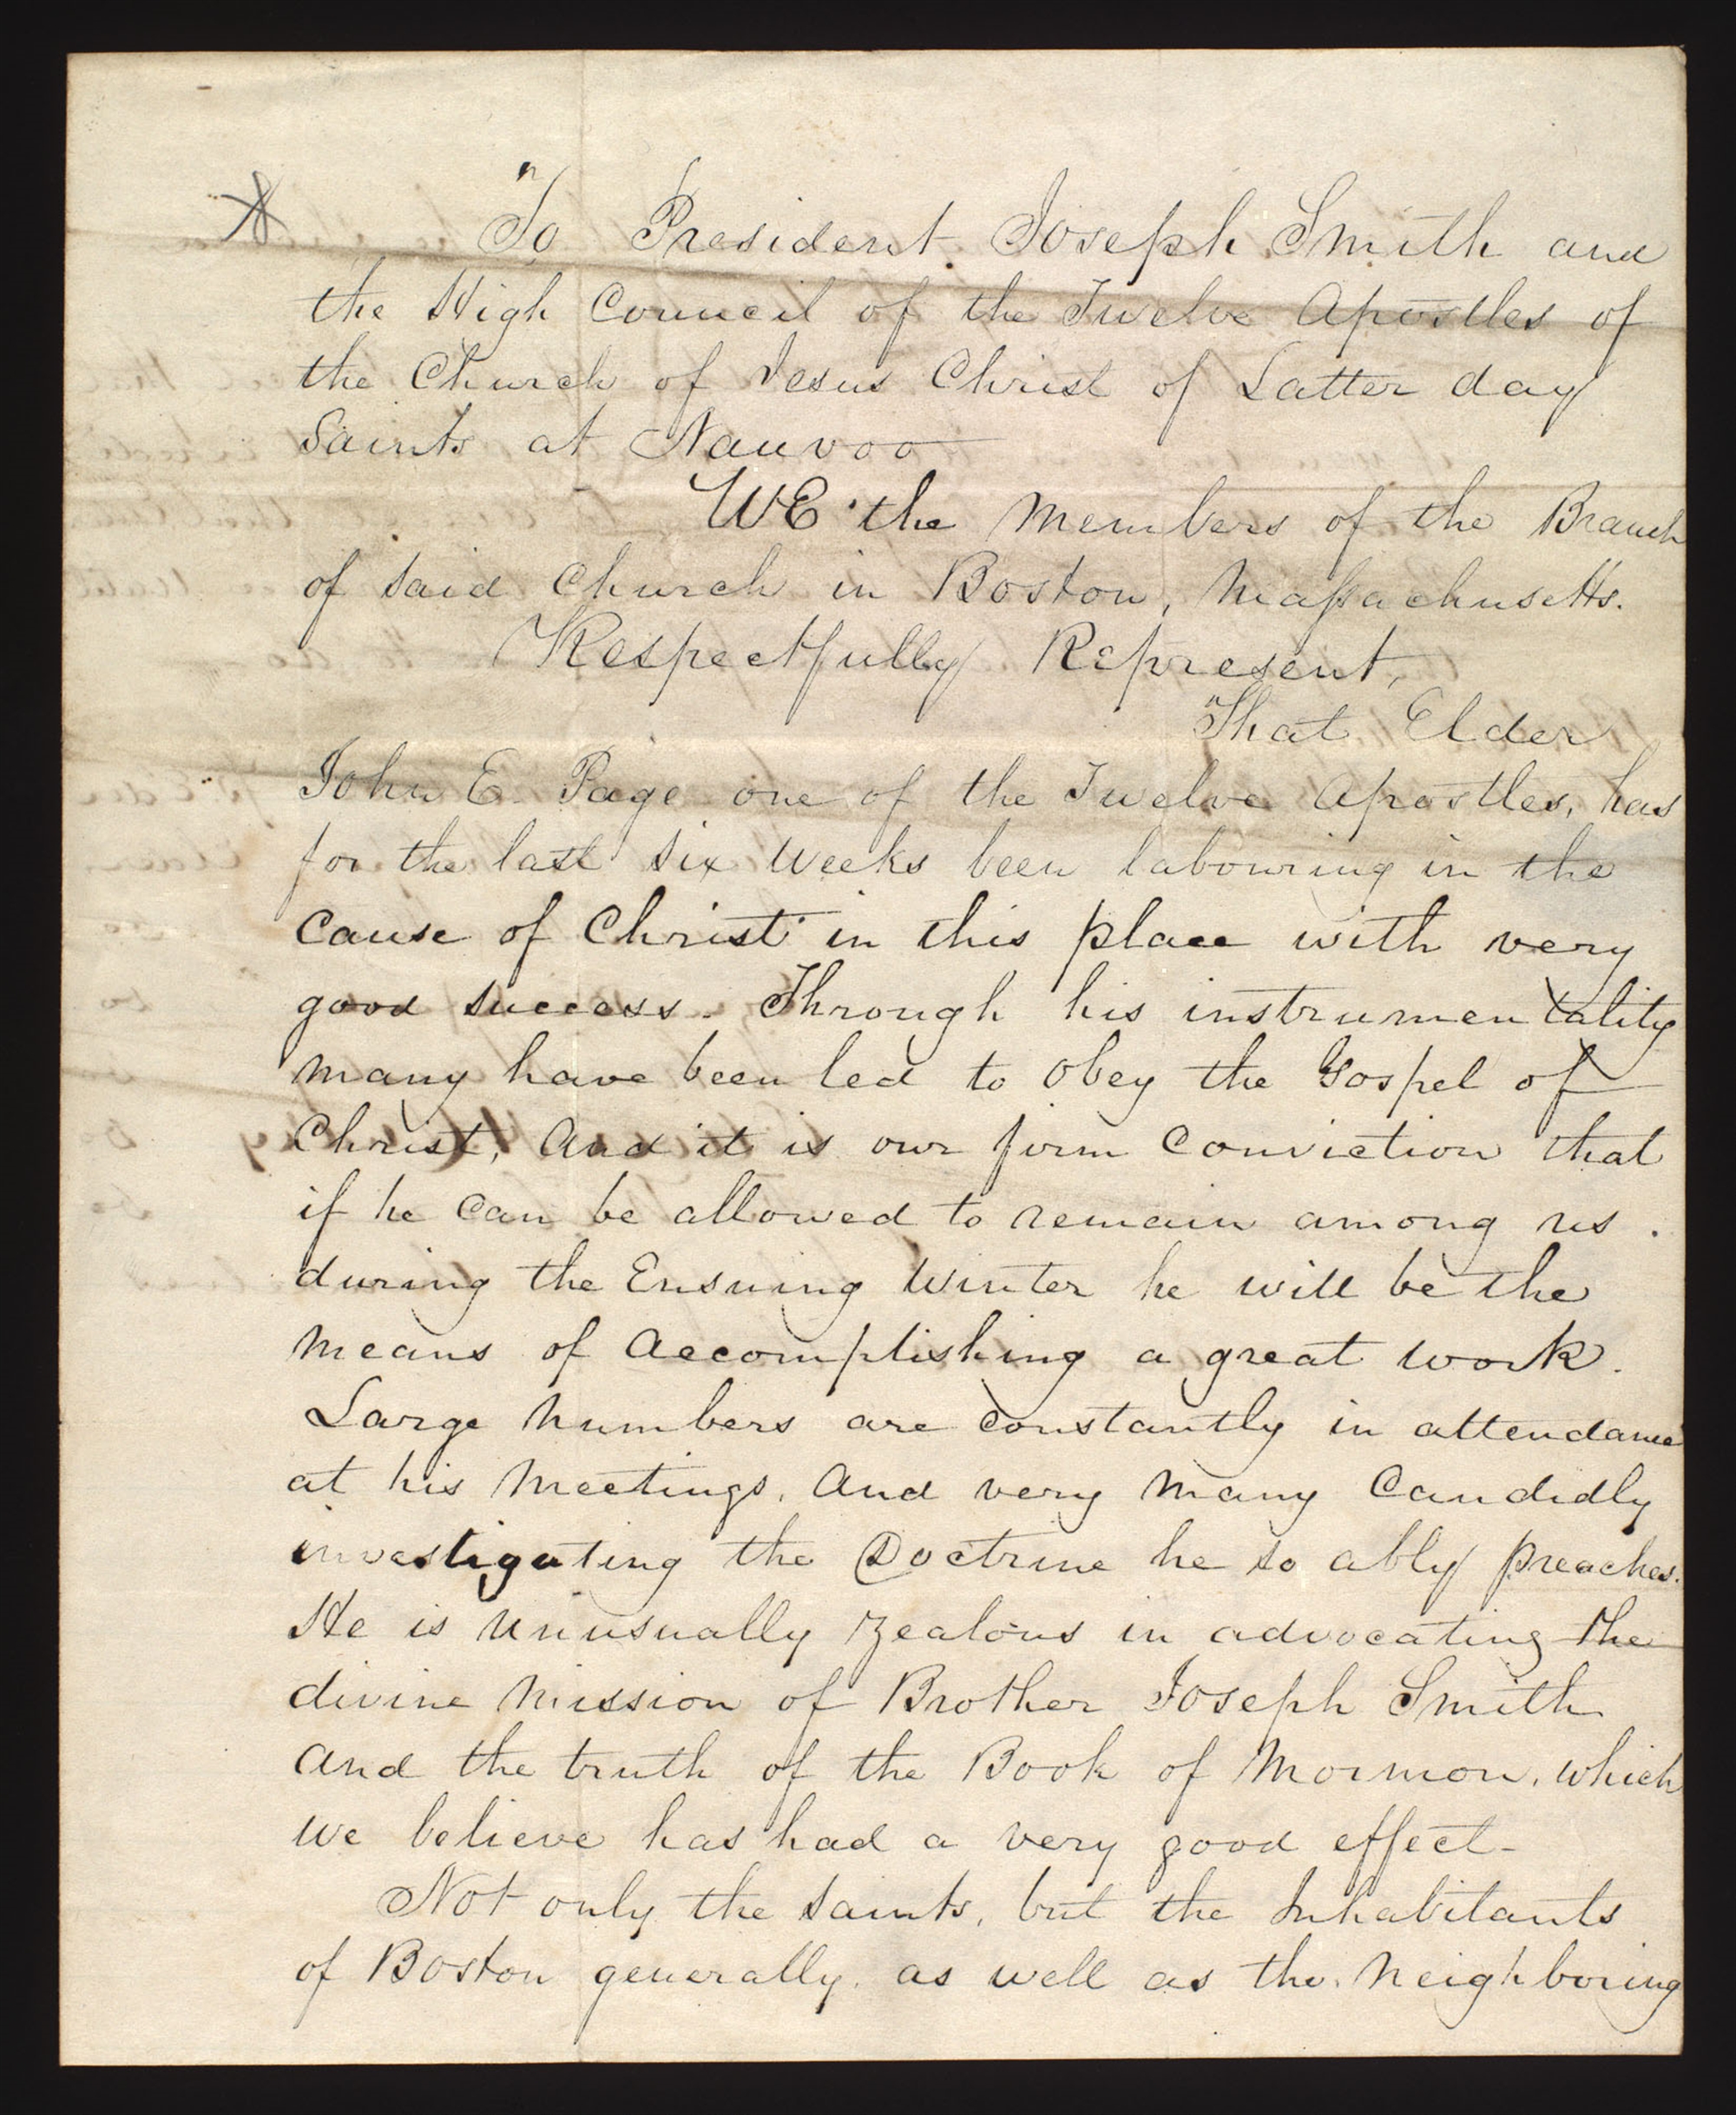 To President Joseph Smith and
the High Council of the Twelve Apostles of
the Church of Jesus Christ of Latter day
Saints at Nauvoo
WE the Members of the Branch
of said Church in Boston, Massachusetts.
Respectfully Represent,
That Elder
John E. Page one of the Twelve Apostles, has
for the last six weeks been labouring in the
Cause of Christ in this place with very
good success. Through his instrumentality
many have been led to obey the Gospel of
Christ, And it is our firm Conviction that
if he can be allowed to remain among us.
during the Ensuing Winter he will be the
means of Accomplishing a great work.
Large Numbers are constantly in attendance
at his Meetings, And very many Candidly
investigating the Doctrine he so ably preaches.
He is unusually Zealous in advocating the
divine Mission of Brother Joseph Smith
and the truth of the Book of Mormon, which
we believe has had a very good effect-
Not only the saints, but the Inhabitants
of Boston generally, as well as the Neighboring